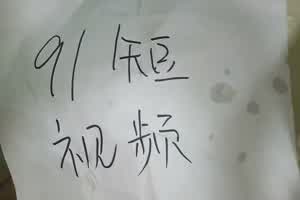 91短
视频